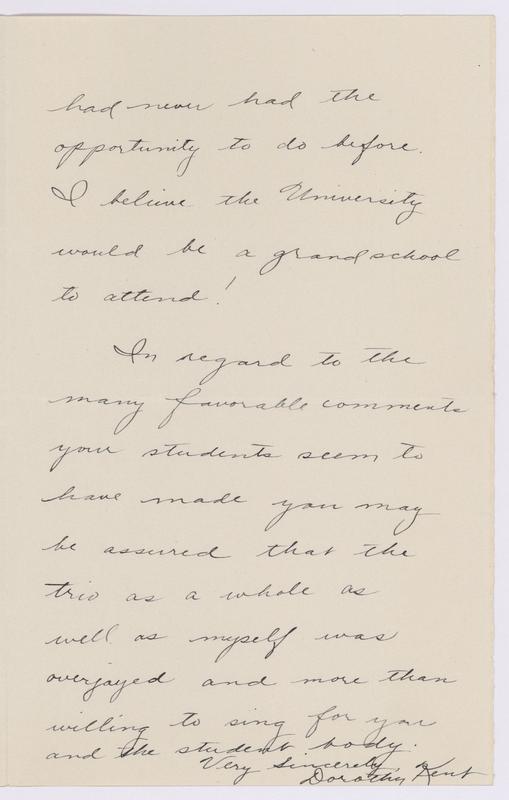 had never had the
opportunity to do before.
I believe the University
would be a grand school
to attend!
In regard to the
many favorable comments
your students seem to
have made you may
be assured that the
trio as a whole as
well as myself was
overjoyed and more than
willing to sing for you
and the student body.
Very Sincerely,
Dorothy Kent